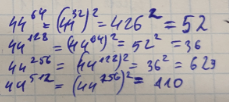 44^64 = (44^32)^2 = 426^2 = 52
44^128 = (44^64)^2 = 52^2 = 36
44^256 = (44^128)^2 = 36^2 = 629
44^512 = (44^256)^2 = 110